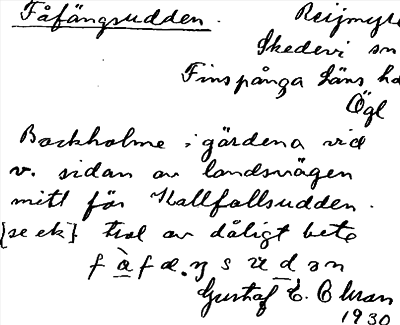 Fåfängsudden. Reijmyre
Skedevi sn
Finspånga läns hd
Ögl
Backholme i gärdena vid
v. sidan av landsvägen
mitt för Kallfallsudden.
[se ek] Hal av dåligt bete
Gustaf E. Ewan
1930